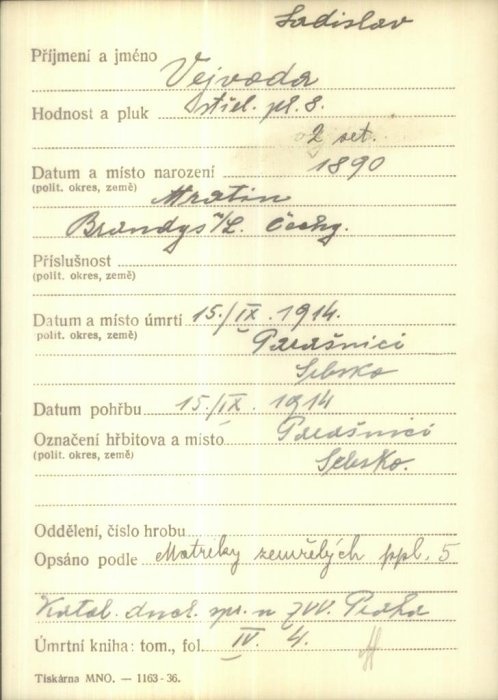 Ladislav
Příjmení a jméno Vejvoda
Hodnost a pluk střel. pl. 8.
2 set.
Datum a místo narození 1890
(polit. okres, země)
Mratin
Brandýs n/L. Čechy.
Příslušnost
(polit. okres, země)
Datum a místo úmrtí 15./IX. 1914.
(polit. okres, země)
Parašnici
Srbsko
Datum pohřbu 15./IX. 1914
Označení hřbitova a místo Parašnici
(polit. okres, země)
Srbsko.
Oddělení, číslo hrobu
Opsáno podle Matriky zemřelých ppl. 5
Katol. duch. spr. u ZVV. Praha
Úmrtní kniha: tom., fol. IV. 4.
Tiskárna MNO. — 1163-36.